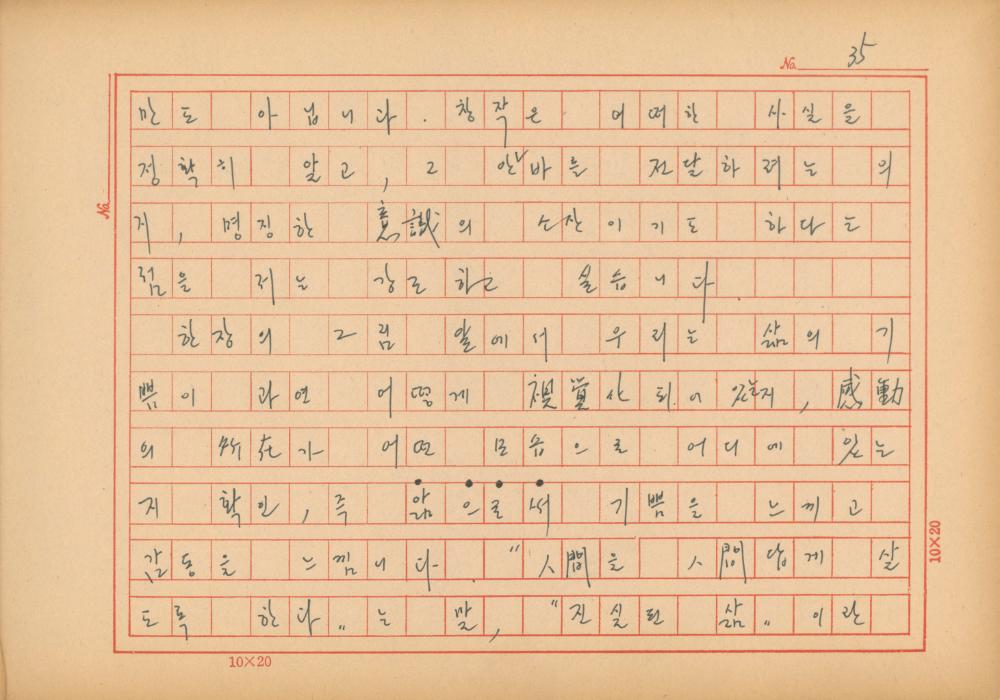 No. 35
만도 아닙니다. 창작은 어떠한 사실을
정확히 알고, 그 안 바를 전달하려는 의
지, 명징한 意識의 소산이기도 하다는
점을 저는 강조하고 싶습니다
한장의 그림 앞에서 우리는 삶의 기
쁨이 과연 어떻게 視覺化 되어 있는지, 感動
의 所在가 어떤 모습으로 어디에 있는
지 확인, 즉 앎으로써 기쁨을 느끼고
감동을 느낍니다. "人間을 人間답게 살
도록 한다"는 말, "진실된 삶" 이란
No.
10×20
10×20